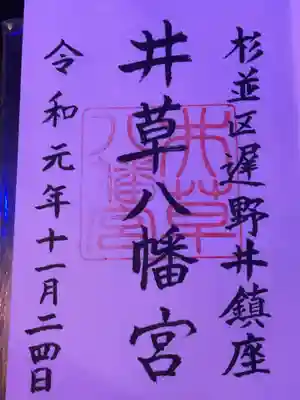 杉並区遅野井鎮座
井草八幡宮
令和元年十一月二四日
井草
八幡宮